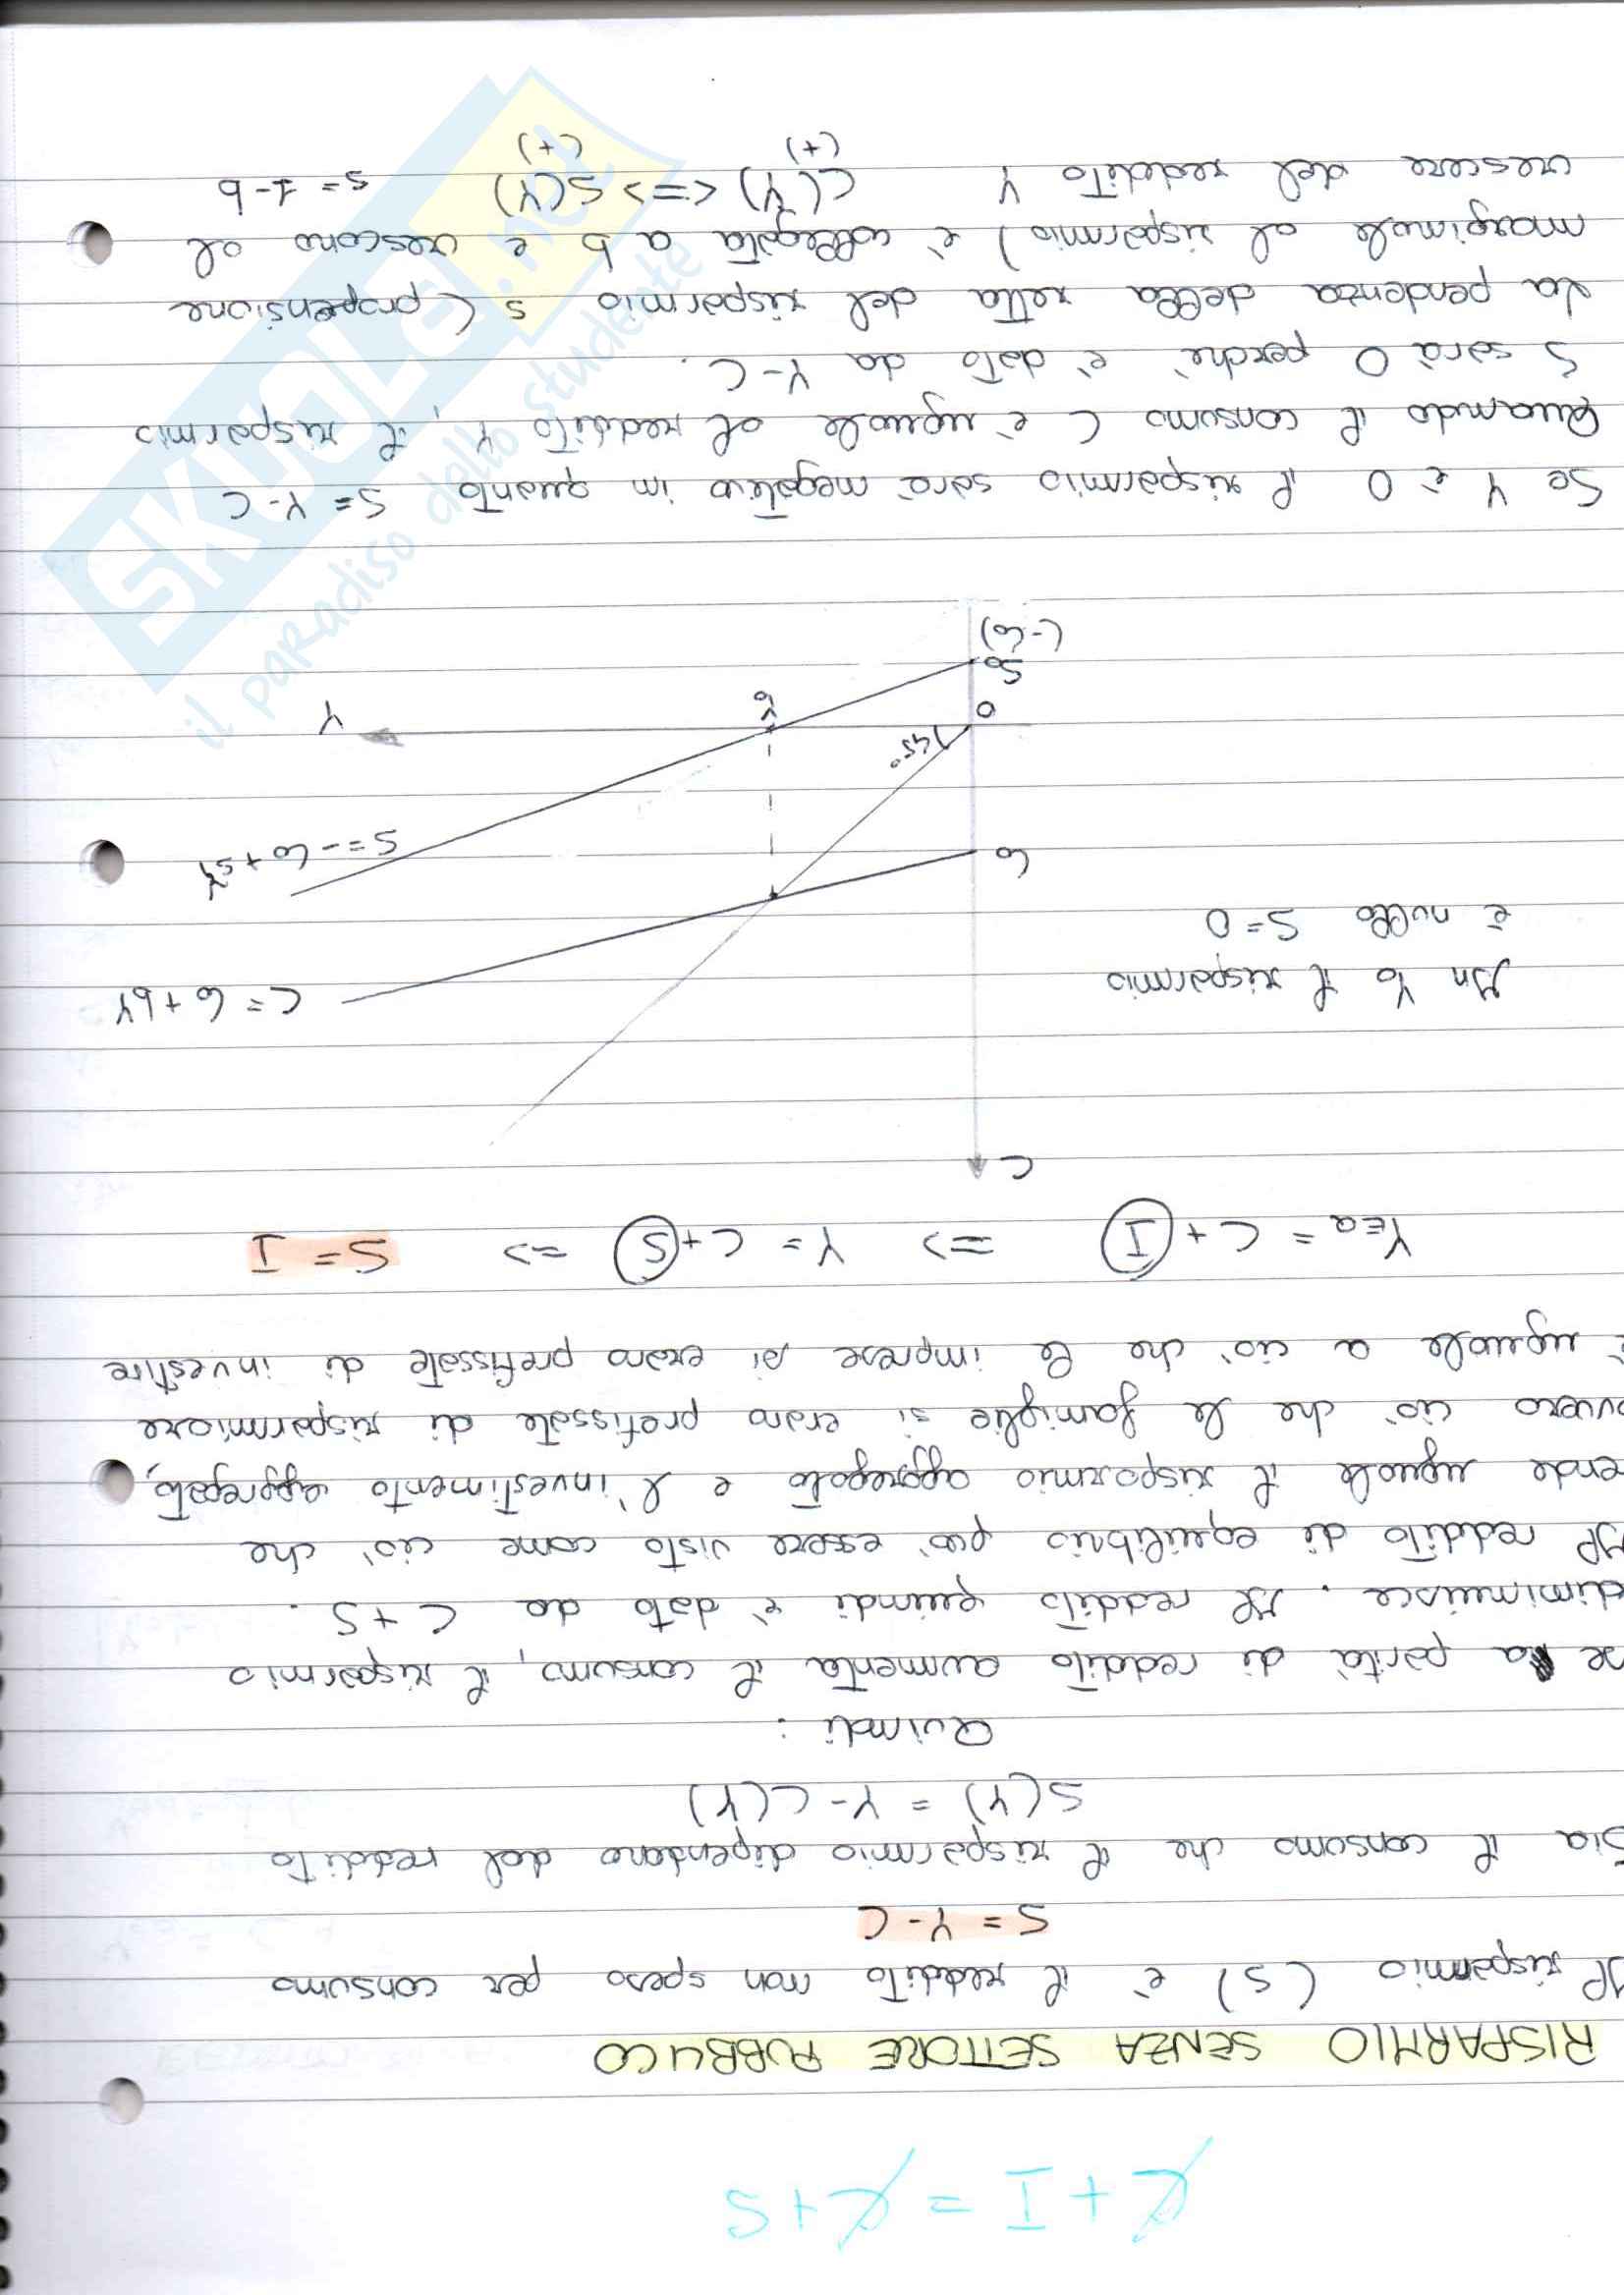 C + I = C + S
RISPARMIO SENZA SETTORE PUBBLICO
Il risparmio (S) è il reddito non speso per consumo
S = Y - C
Sia il consumo che il risparmio dipendono dal reddito
S(Y) = Y - C(Y)
Quindi :
se a parità di reddito aumenta il consumo, il risparmio
diminuisce. Il reddito quindi è dato da C + S.
Il reddito di equilibrio può essere visto come ciò che
rende uguale il risparmio aggregato e l'investimento aggregato,
ovvero ciò che le famiglie si erano prefissate di risparmiare
è uguale a ciò che le imprese si erano prefissate di investire
YEQ = C + I => Y = C + S => S = I
C
In Y0 il risparmio
è nullo S = 0
C = C0 + bY
S = - C0 + sY
C0
45°
0
Y0
Y
S0
(-C0)
Se Y è 0 il risparmio sarà negativo in quanto S = Y - C
Quando il consumo C è uguale al reddito Y, il risparmio
S sarà 0 perchè è dato da Y - C.
La pendenza della retta del risparmio s (propensione
marginale al risparmio) è collegata a b e crescono al
crescere del reddito Y C(Y) <=> S(Y) s = 1 - b
(+) (+)
SKUOLA.net
il paradiso dello studente